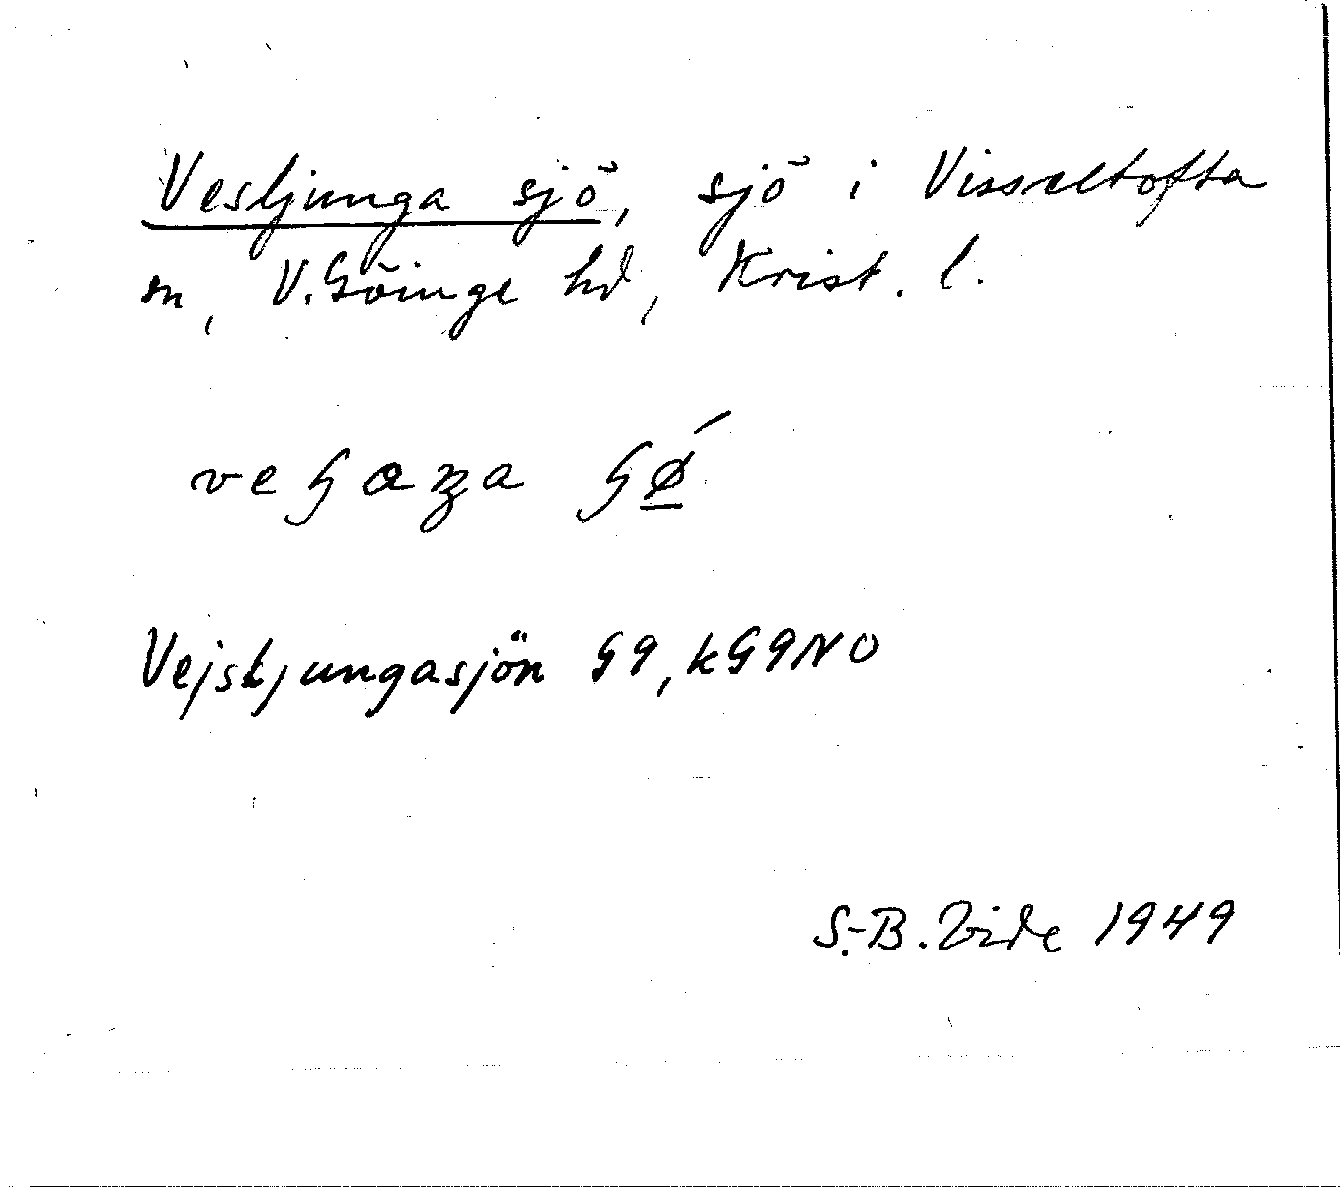 Vesljunga sjö, sjö i Visseltofta
sn, V. Göinge hd, Krist. l.
Vejsljungasjön G9, kG9NO
S.-B. Vide 1949